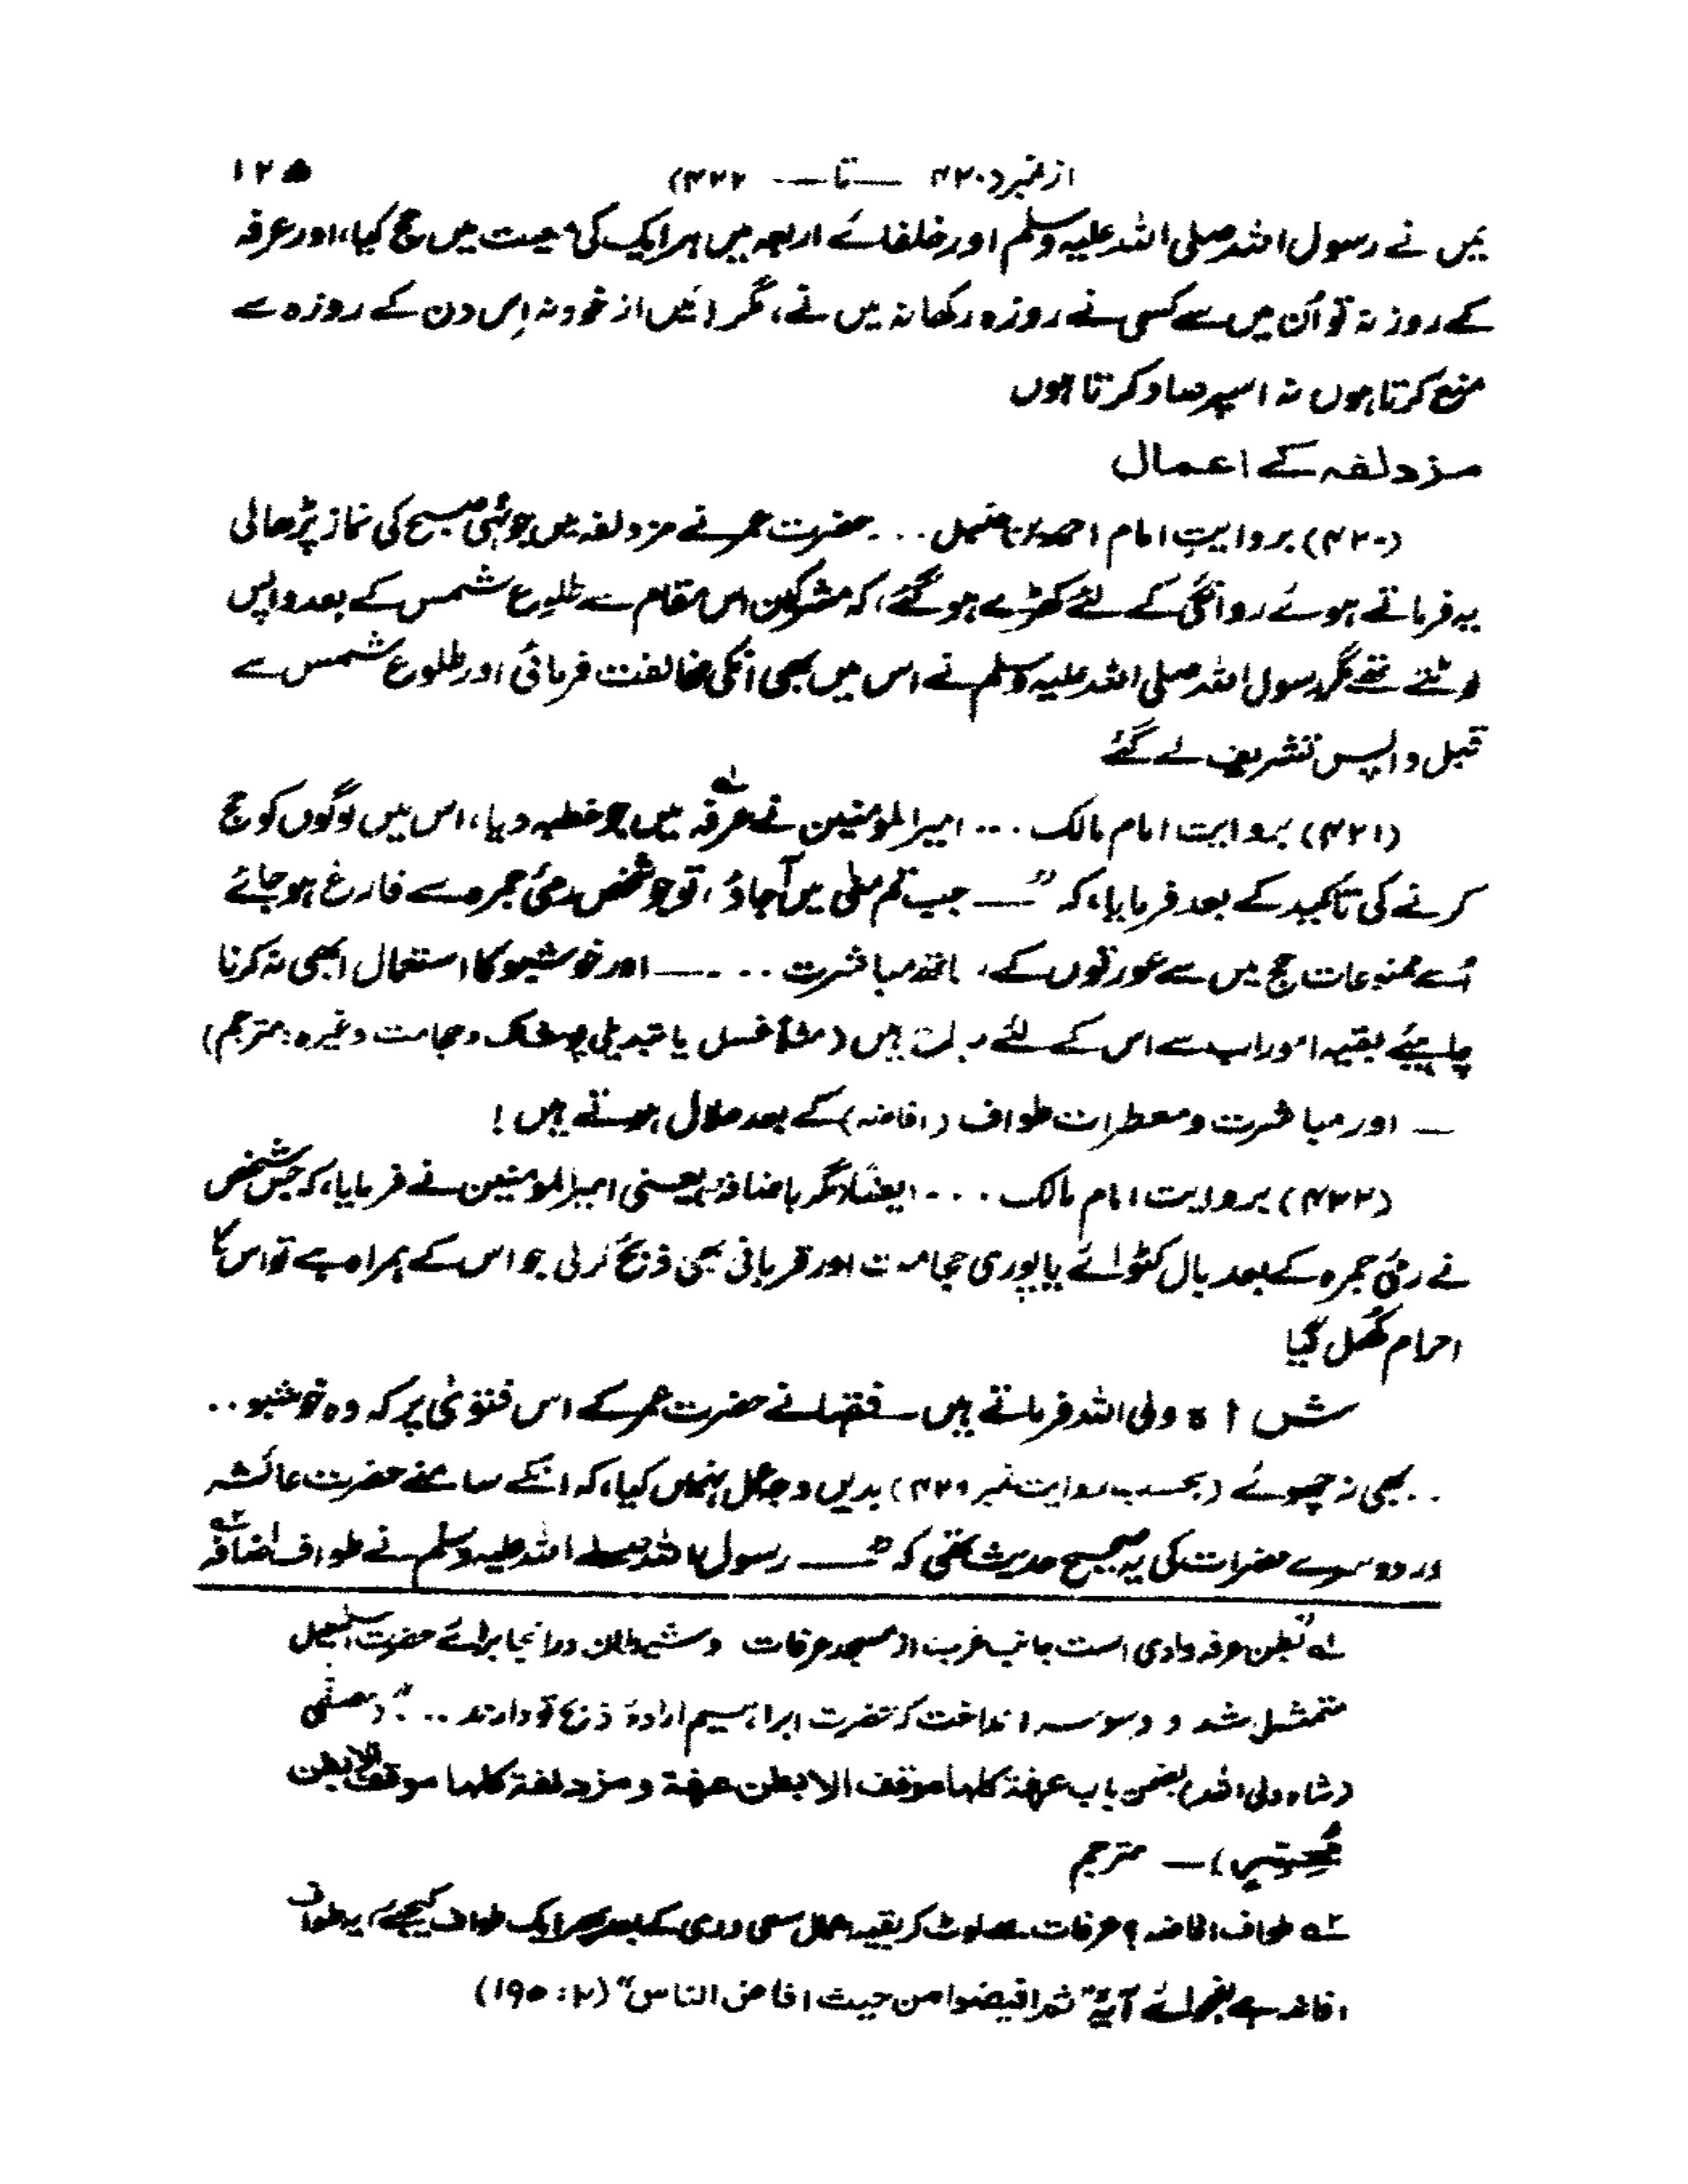 از نمبر (۴۲۰ — تا — ۴۲۲) ۱۲۵
میں نے رسول اللہ صلی اللہ علیہ وسلم اور خلفائے اربعہ میں ہر ایک کی معیت میں حج کیا، اور عرفہ
کے روز نہ تو اُن میں سے کسی نے روزہ رکھا نہ میں نے، مگر میں از خود نہ اِس دن کے روزہ سے
منع کرتا ہوں نہ اسپر صاد کرتا ہوں
مزدلفہ کے اعمال
(۴۲۰) بروایتِ امام احمد بن حنبل . . . حضرت عمر نے مزدلفہ میں جونہی صبح کی نماز پڑھالی
یہ فرماتے ہوئے روانگی کے لئے کھڑے ہو گئے، کہ مشرکین اس مقام سے طلوع شمس کے بعد واپس
لوٹتے تھے مگر رسول اللہ صلی اللہ علیہ وسلم نے اس میں بھی انکی مخالفت فرمائی اور طلوع شمس سے
قبل واپس تشریف لے گئے
(۴۲۱) بروایت امام مالک . . . امیر المؤمنین نے عرفہ۱؎ میں جو خطبہ دیا، اس میں لوگوں کو حج
کرنے کی تاکید کے بعد فرمایا، کہ ”— جب تم منٰی میں آجاؤ، تو جو شخص رمئ جمرہ سے فارغ ہو جائے
اُسے ممنوعات حج میں سے عورتوں کے ساتھ مباشرت . . . — اور خوشبو کا استعمال ابھی نہ کرنا
چاہیئے بقیہ امور اب سے اس کے لئے مباح ہیں (مثلاً غسل یا تبدیلی پوشاک و حجامت وغیرہ: مترجم)
— اور مباشرت و معطرات طواف (افاضہ) کے بعد حلال ہوتے ہیں!
(۴۲۲) بروایت امام مالک . . . ایضاً مگر باضافۂ یعنی امیر المومنین نے فرمایا، کہ جس شخص
نے رمئ جمرہ کے بعد بال کٹوائے یا پوری حجامت اور قربانی بھی ذبح کرلی جو اس کے ہمراہ ہے تو اس کا
احرام کھُل گیا
شاہ ولی اللہ فرماتے ہیں — فقہا نے حضرت عمر کے اس فتویٰ پر کہ وہ خوشبو . .
. . بھی نہ چھوئے (بحسب روایت نمبر ۴۲۱) بدیں وجہ عمل نہیں کیا، کہ انکے سامنے حضرت عائشہ
اور دوسرے حضرات کی یہ صحیح حدیث تھی کہ ”— رسول اللہ صلے اللہ علیہ وسلم نے طواف افاضہ۲؎
۱؎ ”بطن عرفہ وادی است جانب غرب از مسجد عرفات و شیطان درانجا برائے حضرت اسمٰعیل
متمثل شد و وسوسہ انداخت کہ حضرت ابراہیم ارادۂ ذبح تو دارند . .“ (مصفٰی
(شاہ ولی اللہ) بضمن باب عرفة کلها موقف الا بطن عرفة و مزدلفة کلها موقف الا بطن
مُحسّر) — مترجم
۲؎ طواف افاضہ؟ عرفات سے لوٹ کر بقیہ عمل سعی و رمی کے بعد پھر ایک طواف کیجئے، یہ طواف
افاضہ ہے بفحوائے آیۃ ”ثم افیضوا من حیث افاض الناس“ (۲: ۱۹۵)